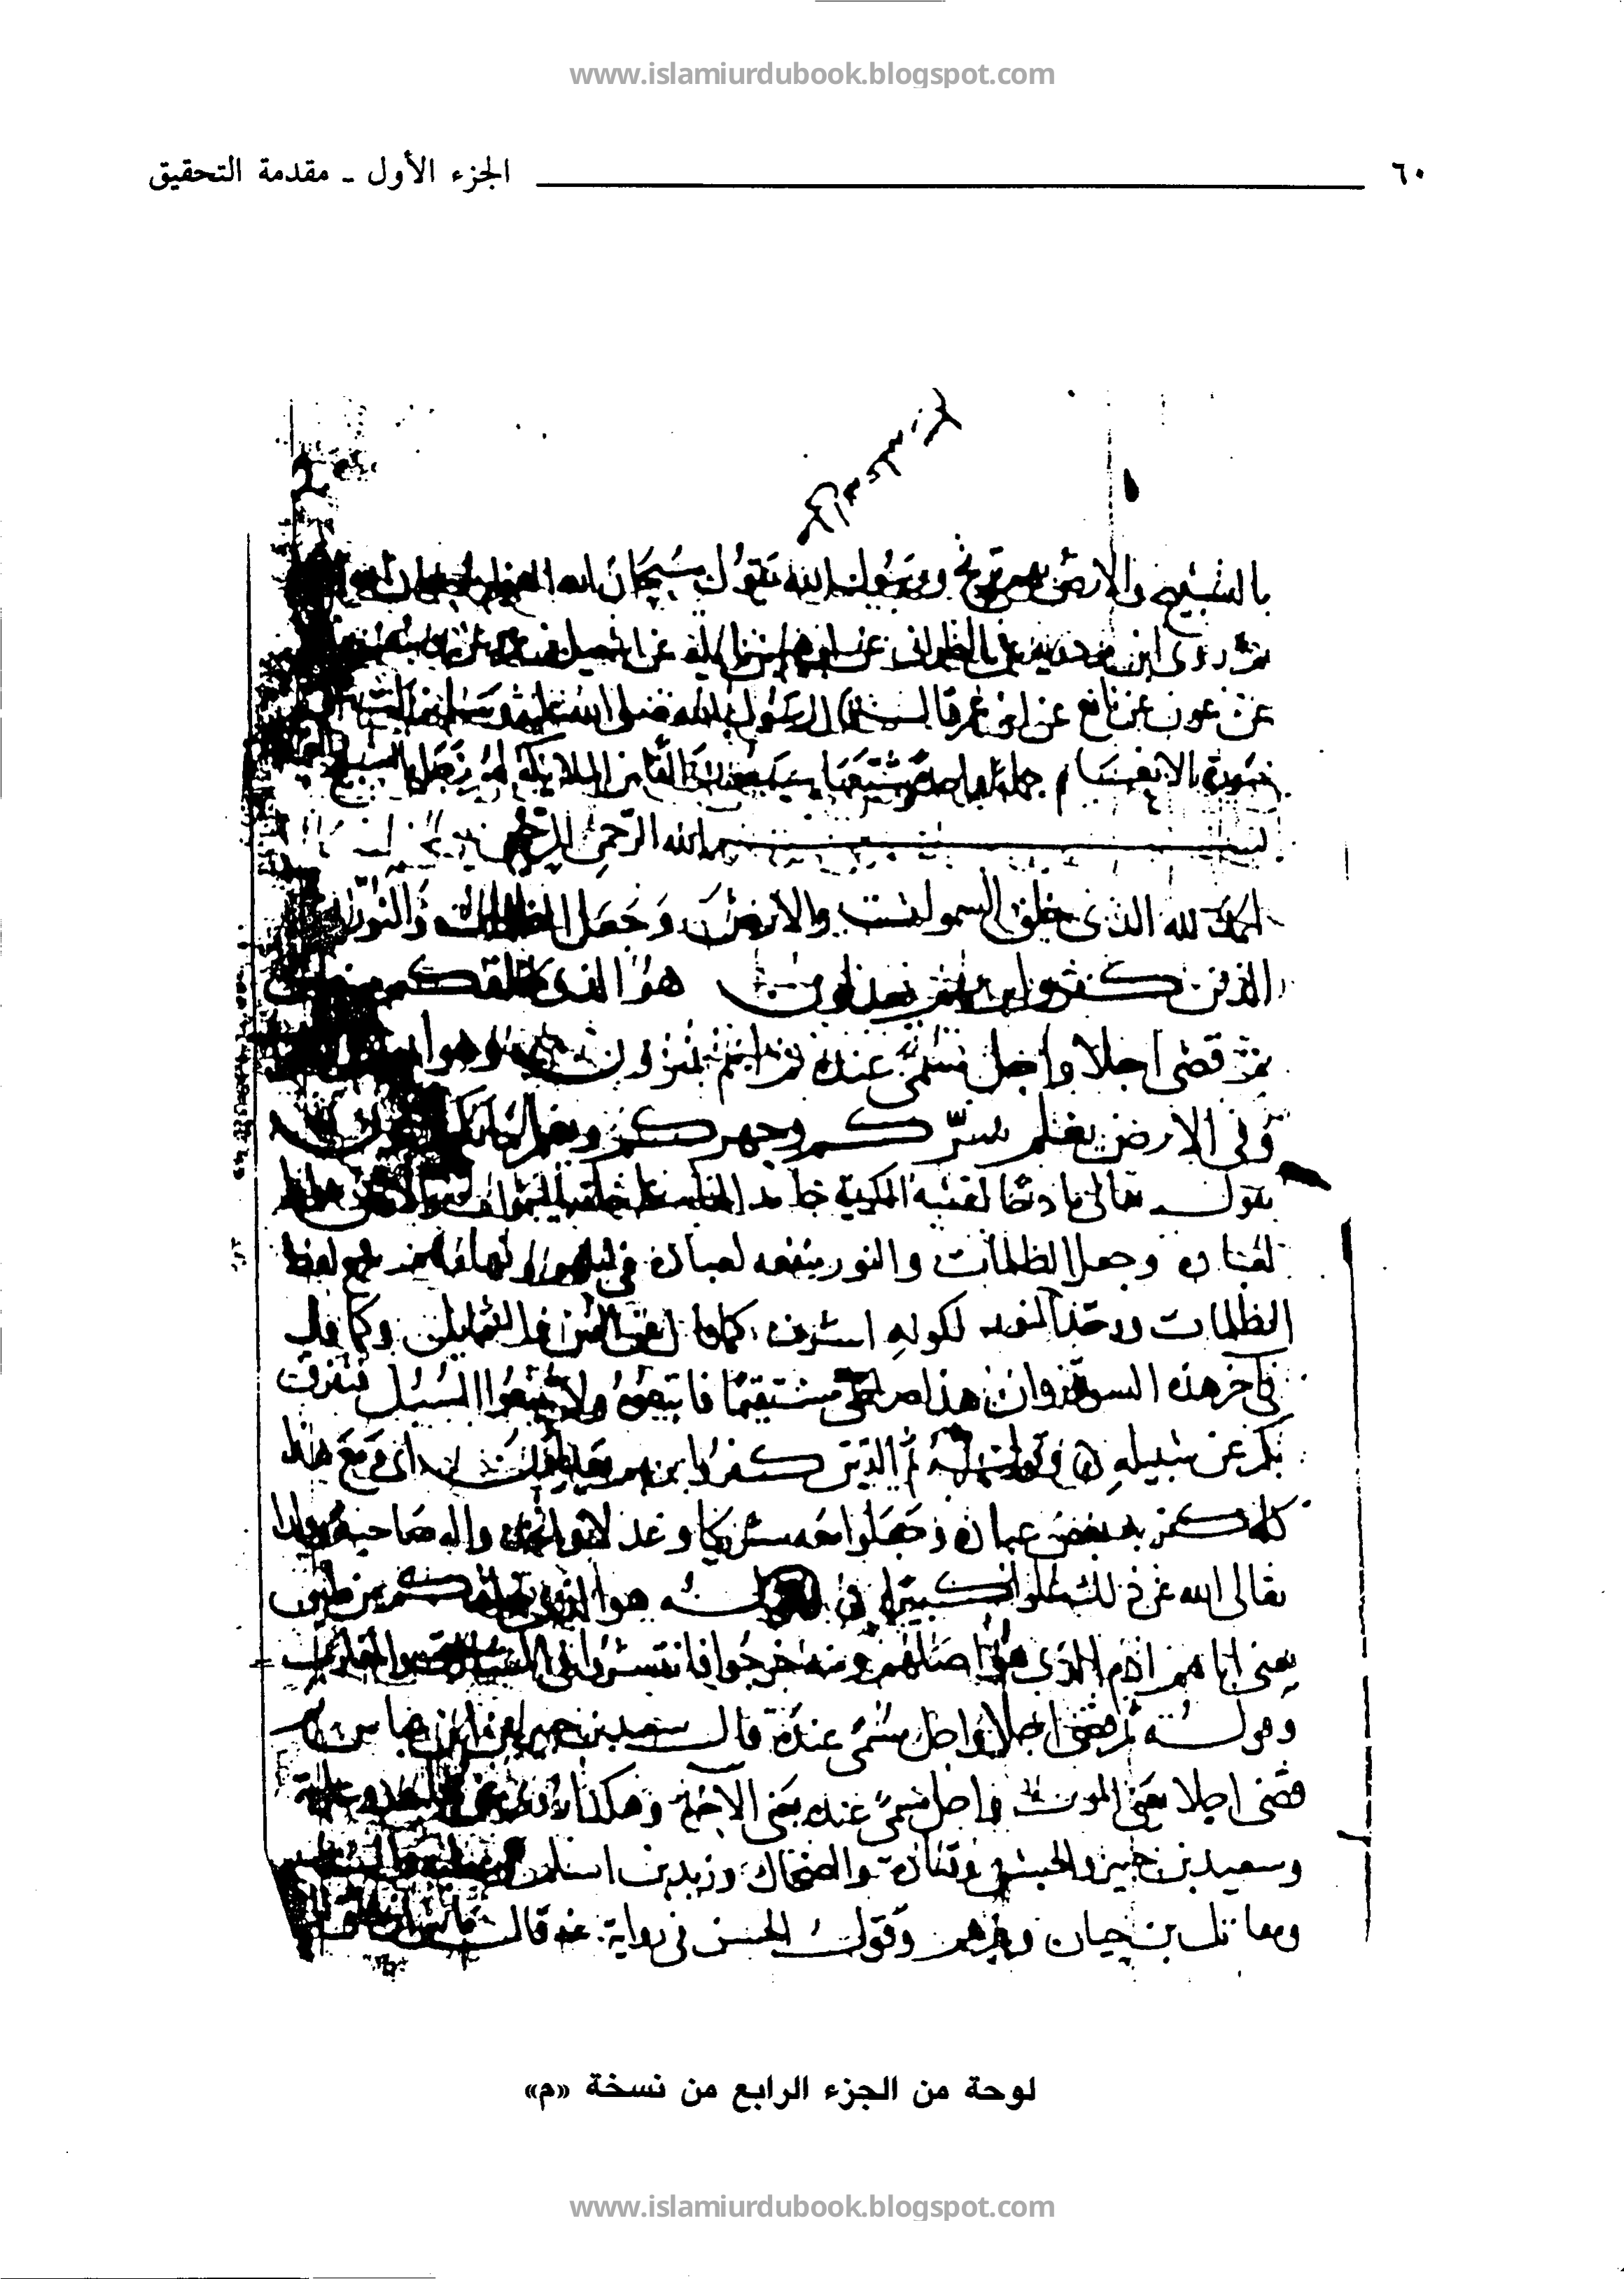 www.islamiurdubook.blogspot.com
٦٠ الجزء الأول ـ مقدمة التحقيق
بالتسبيح والارض ترتج ورسول الله يقول سبحان الله
ثم روى ابن مردويه عن الطبراني عن
عن عون عن نافع عن ابن عمر قال قال رسول الله صلى الله عليه وسلم نزلت
سورة الانعام جملة واحدة شيعها سبعون الفا من الملائكة لهم زجل بالتسبيح
بسم الله الرحمن الرحيم
الحمد لله الذي خلق السموات والارض وجعل الظلمات والنور
الذين كفروا بربهم يعدلون هو الذي خلقكم من
ثم قضى اجلا واجل مسمى عنده ثم انتم تمترون وهو
وفي الارض يعلم سركم وجهركم ويعلم ما
يقول تعالى مادحا لنفسه الكريمة حامدا لها على خلقه السموات والارض
لعباده وجعل الظلمات والنور منفعه لعباده في ليلهم لفظ
الظلمات ووحد النور لكونه اشرف كما قال عن اليمين والشمايل وكما قال
في اخر هذه السورة وان هذا صراطي مستقيما فاتبعوه ولا تتبعوا السبل فتفرق
بكم عن سبيله وقوله ثم الذين كفروا بربهم يعدلون اي ومع هذا
كله كفر به بعض عباده وجعلوا معه شريكا وعدلا واله صاحبة وولدا
تعالى الله عن ذلك علوا كبيرا هو الذي خلقكم من طين
يعني اباهم ادم الذي هو اصلهم ومنه خرجوا فانتشروا في
وقوله ثم قضى اجلا واجل مسمى عنده قال سعيد بن جبير عن ابن عباس ثم
قضى اجلا يعني الموت واجل مسمى عنده يعني الاخرة وهكذا
وسعيد بن جبير والحسن وقتادة والضحاك وزيد بن اسلم
ومقاتل بن حيان وغيرهم وقول الحسن في رواية عنه قال
لوحة من الجزء الرابع من نسخة «م»
www.islamiurdubook.blogspot.com